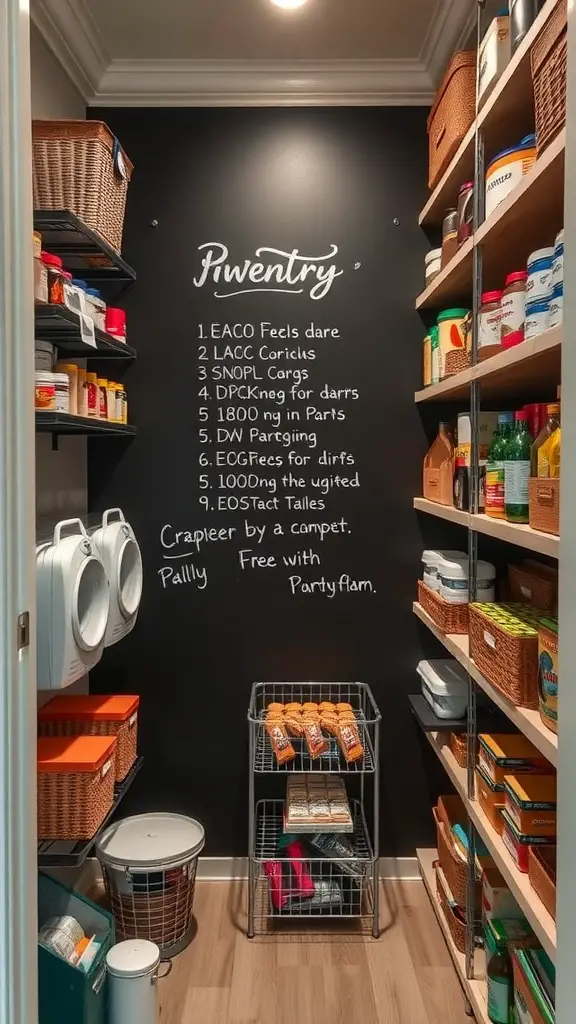 Piwentry
1. EACO Feels dare
2 LACC Coriclus
3 SNOPL Cargs
4. DPCKneg for darrs
5 1800 ng in Parts
5. DW Partgiing
6. ECGFrees for dirfs
5. 100Dng the ugited
9. EOSTact Talles
Crapleer by a campet.
Pallly Free with
Partyflam.